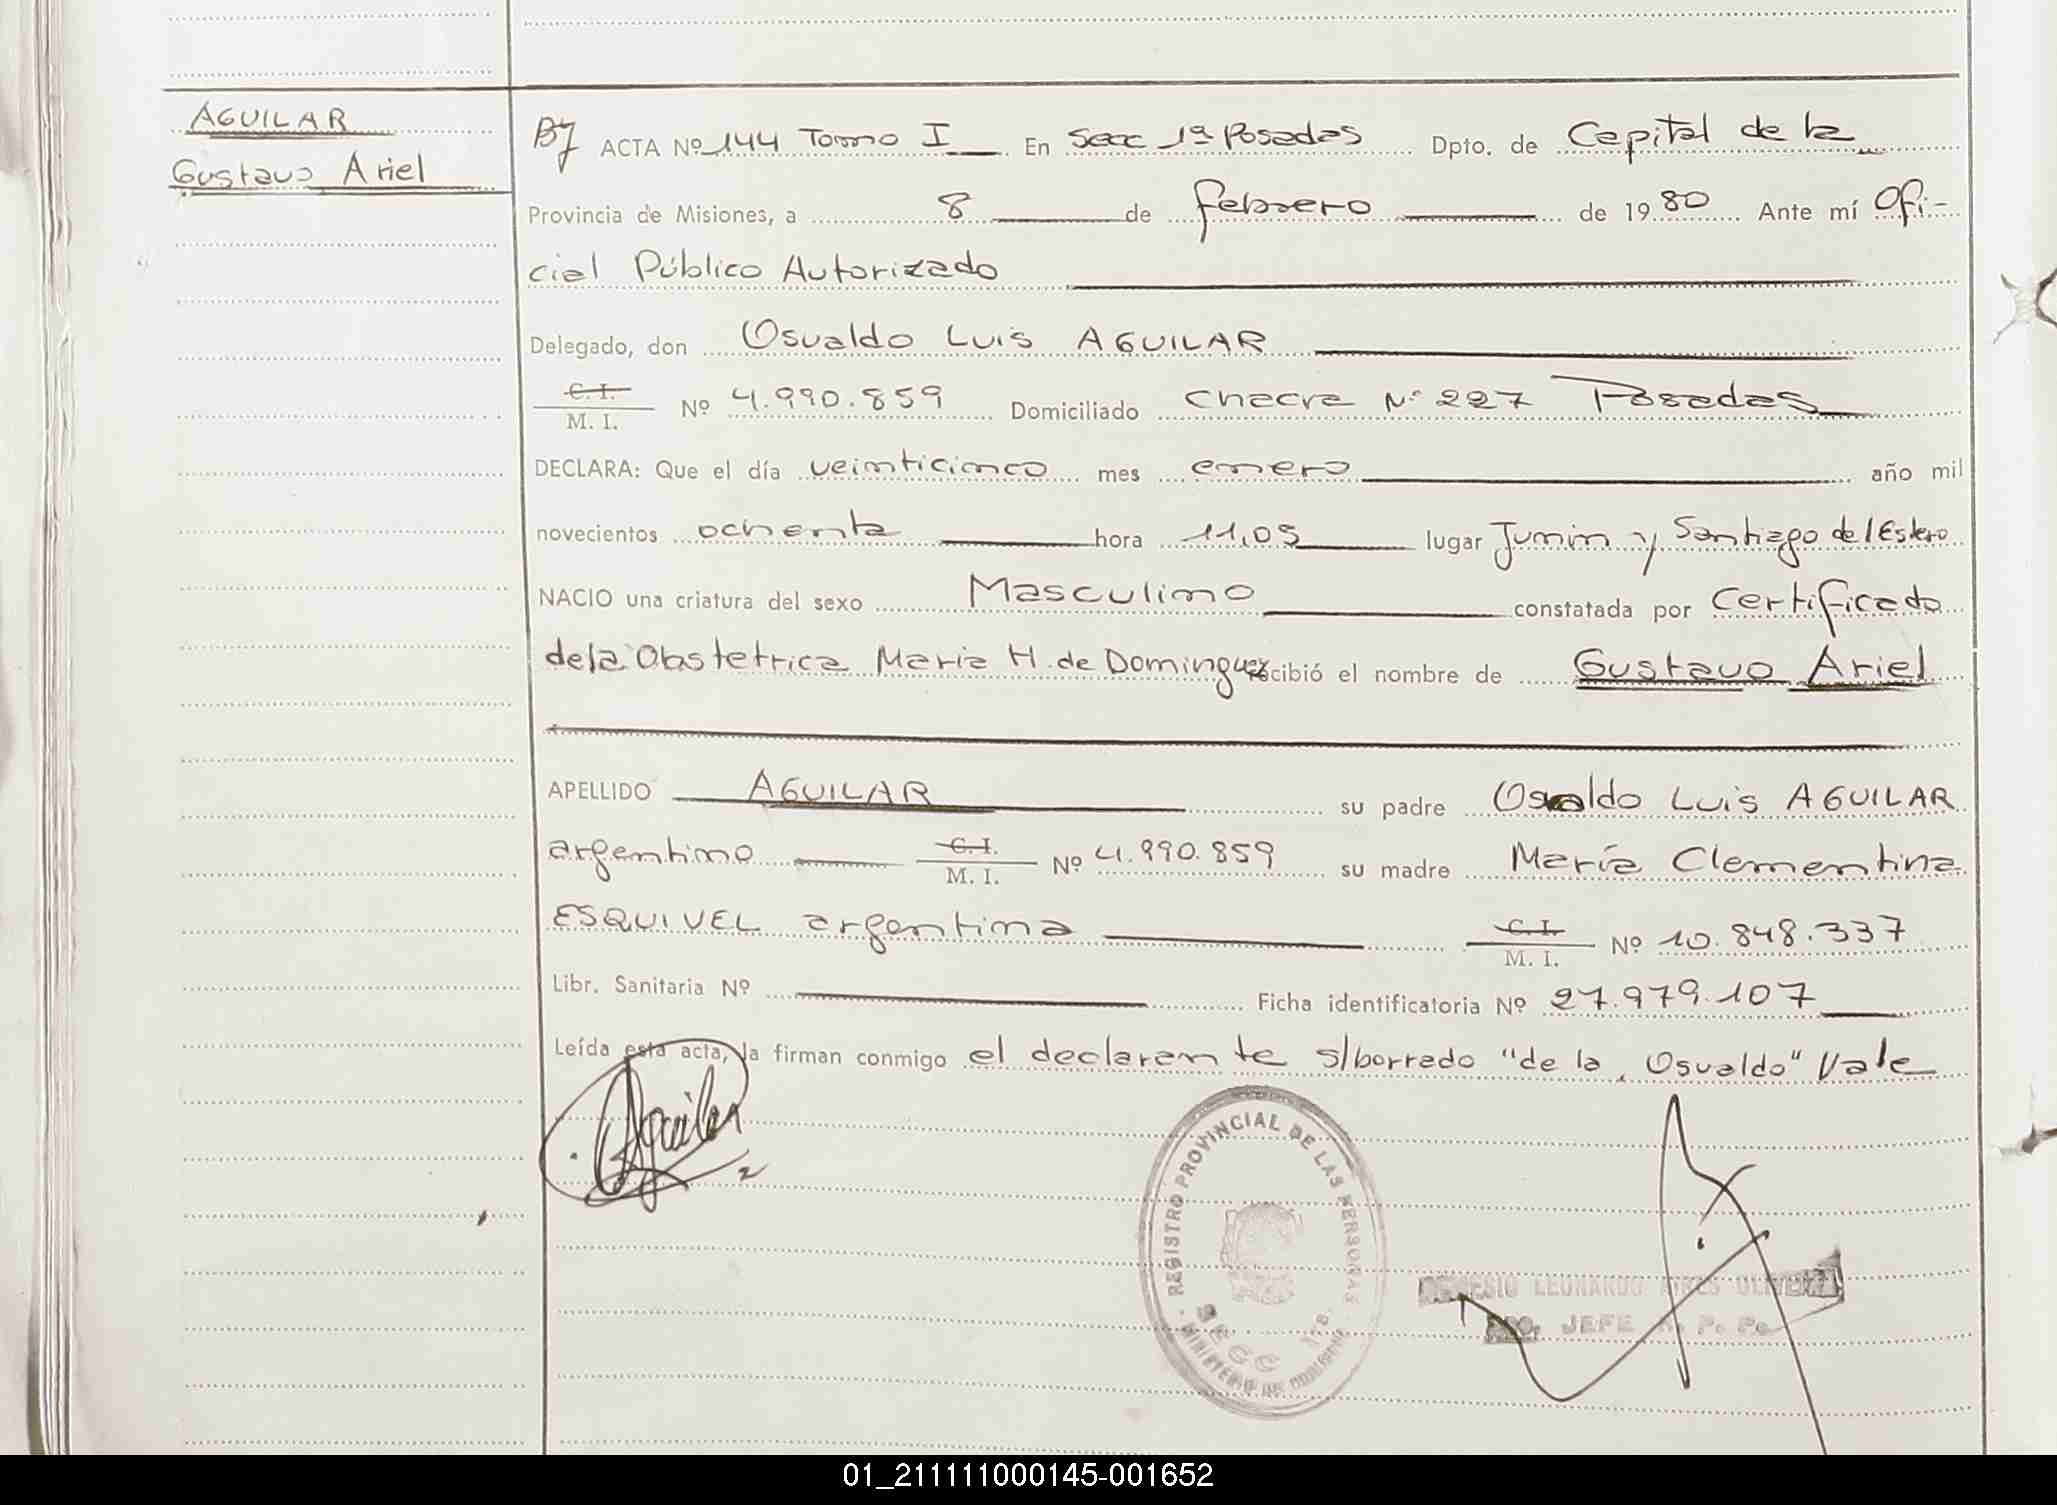 AGUILAR
Gustavo Ariel
ACTA Nº 144 Tomo I En Secc 1ª Posadas Dpto. de Capital de la
Provincia de Misiones, a 8 de febrero de 1980 Ante mí Ofi-
cial Público Autorizado
Delegado, don Osvaldo Luis AGUILAR
C. I.
M. I. Nº 4.990.859 Domiciliado Chacra Nº 227 Posadas
DECLARA: Que el día veinticinco mes enero año mil
novecientos ochenta hora 11,05 lugar Junin y Santiago del Estero
NACIO una criatura del sexo Masculino constatada por Certificado
de la Obstetrica Maria H. de Dominguez recibió el nombre de Gustavo Ariel
APELLIDO AGUILAR su padre Osvaldo Luis AGUILAR
argentino C. I.
M. I. Nº 4.990.859 su madre María Clementina
ESQUIVEL argentina C. I.
M. I. Nº 10.848.337
Libr. Sanitaria Nº Ficha identificatoria Nº 27.979.107
Leída esta acta, la firman conmigo el declarante s/borrado "de la, Osvaldo" Vale
Aguilar
REGISTRO PROVINCIAL DE LAS PERSONAS
SECC 1ª
MINISTERIO DE GOBIERNO
LEONARDO OLIVEIRA
JEFE R. P. P.
01_211111000145-001652